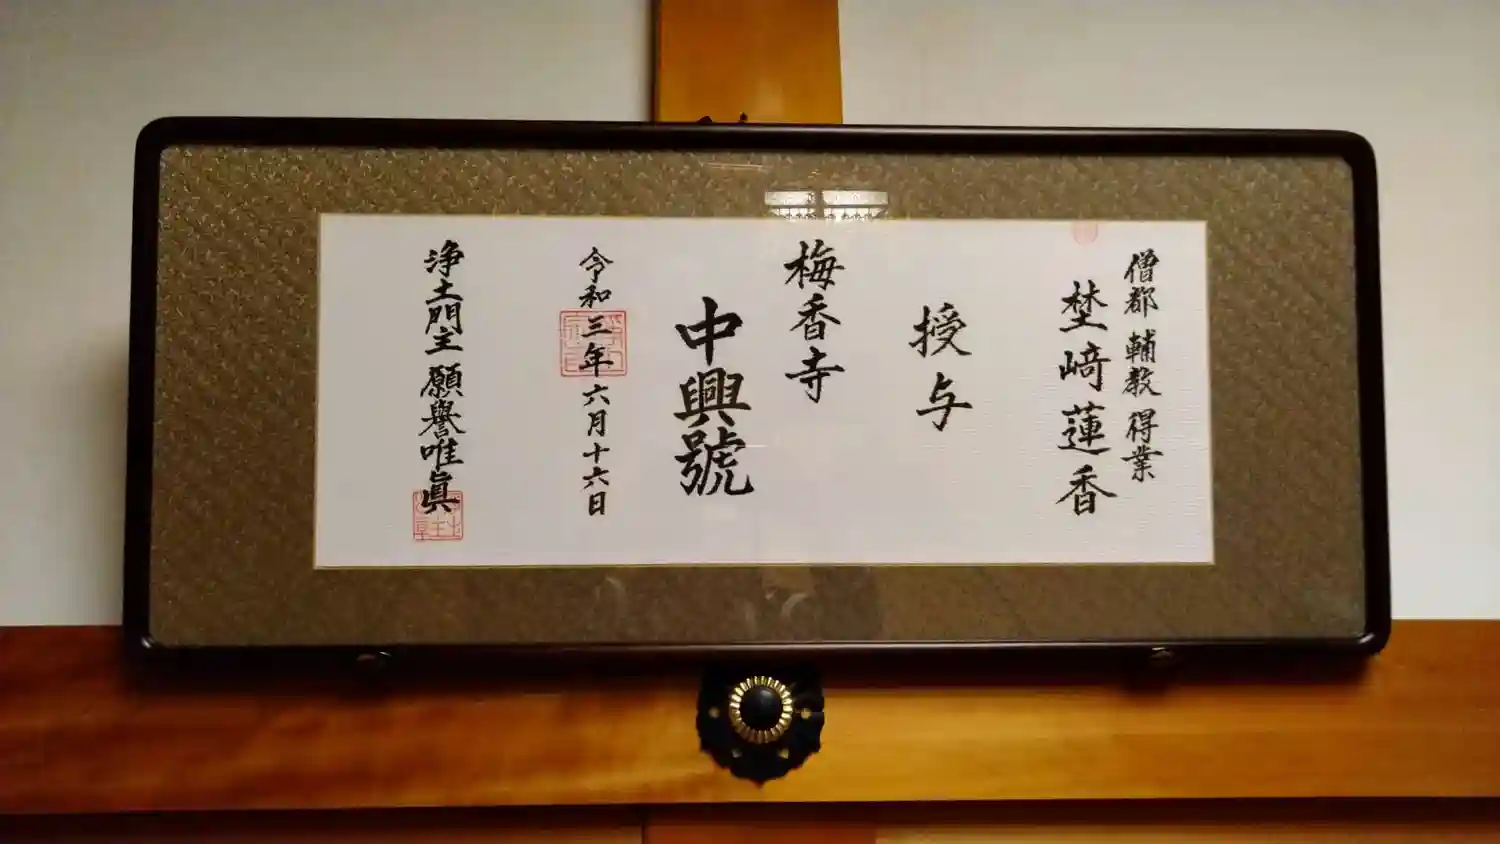 僧都 輔教 得業
埜﨑蓮香
授与
梅香寺
中興號
令和三年六月十六日
浄土門主 願譽唯眞